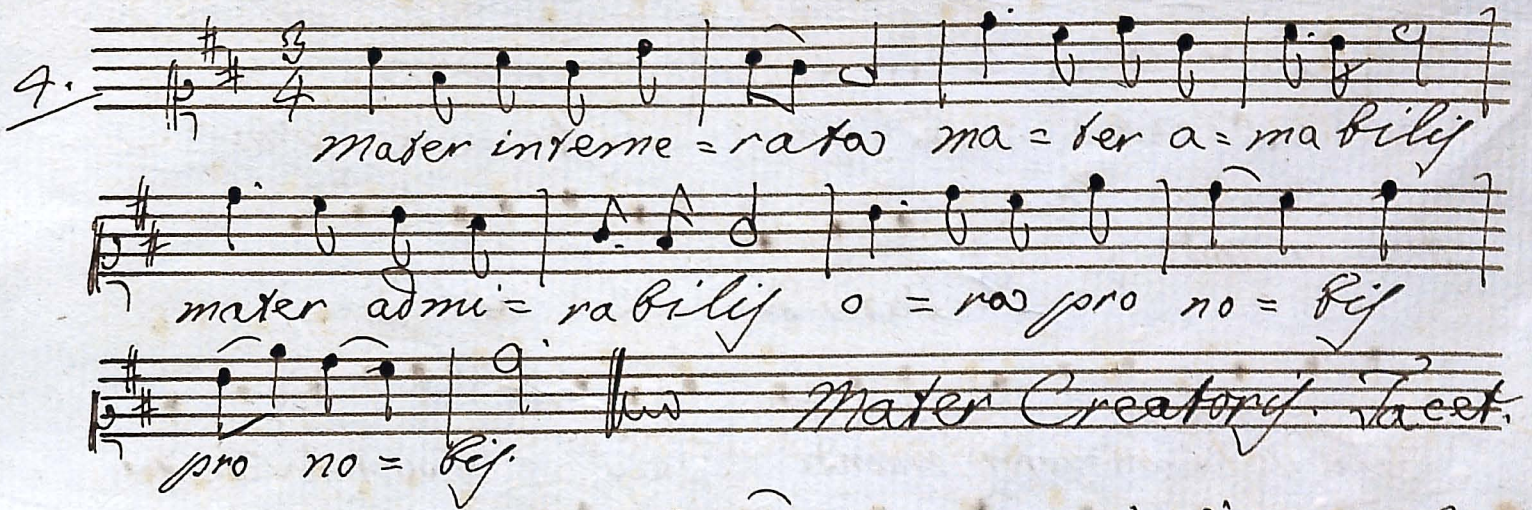 4. 3/4
Mater interme = rata ma = ter a = ma bilis
mater admi = rabilis o = ra pro no = bis
Mater Creatoris. Tacet.
pro no = bis.